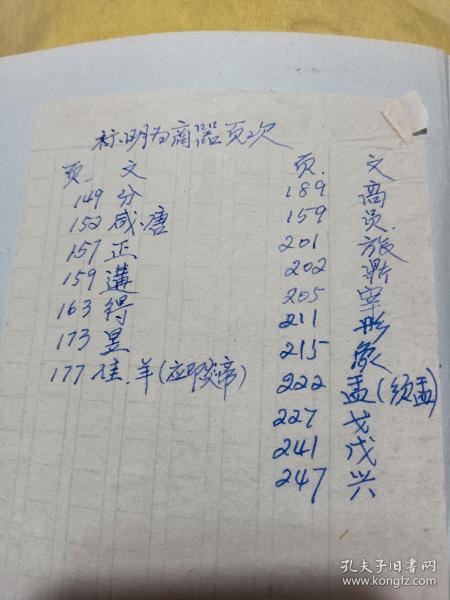 标明为商器页次
页 文
149 分
152 咸.唐
157 正
159 遘
163 得
173 昱
177 隹.羊(应即文帝)
页. 文
189 商
159 员.
201 旅
202 鼎
205 宰
211 彤
215 象
222 盂(须盂)
227 戈
241 戊
247 兴
孔夫子旧书网
www.kongfz.com